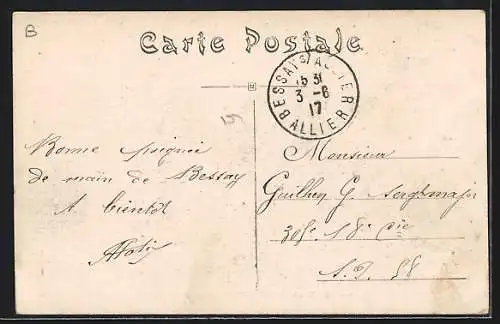 B
Carte Postale
BESSAY S/ ALLIER
15 31
3 - 6
17
ALLIER
Bonne poignée
de main de Bessay
A bientôt
Monsieur
Guilhen G. Serg. major
305e 18e Cie
S.P. 88